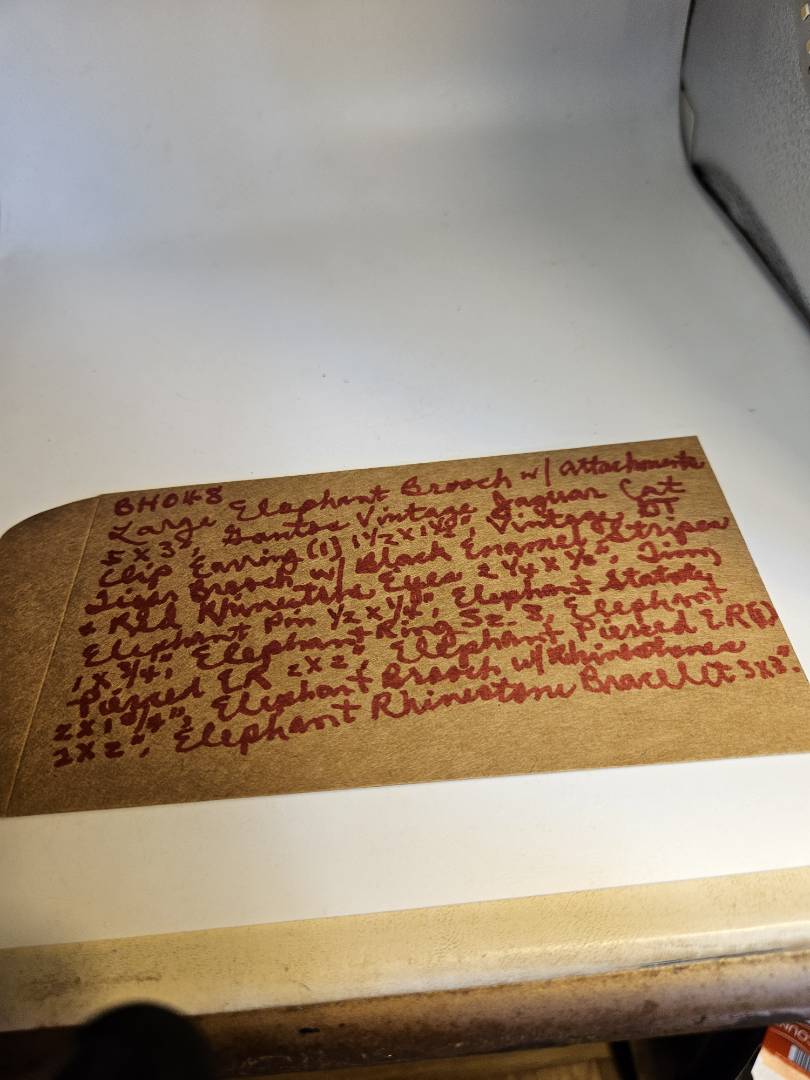 BH048
Large Elephant Brooch w/ attachments
5 x 3", Vintage Jaguar Cat
Clip Earring (1) 1 1/2 x 1 1/2", Vintage DT
Tiger Brooch w/ Black Enamel Stripes
& Red Rhinestone Eyes 2 1/4 x 1/2", Tiny
Elephant Pin 1/2 x 1/4", Elephant
1 x 3/4", Elephant Ring Sz. 8, Elephant
Pierced ER 2 x 2", Elephant Pierced ER (1)
2 x 1 3/4", Elephant Brooch w/ Rhinestones
2 x 2", Elephant Rhinestone Bracelet 3 x 3".